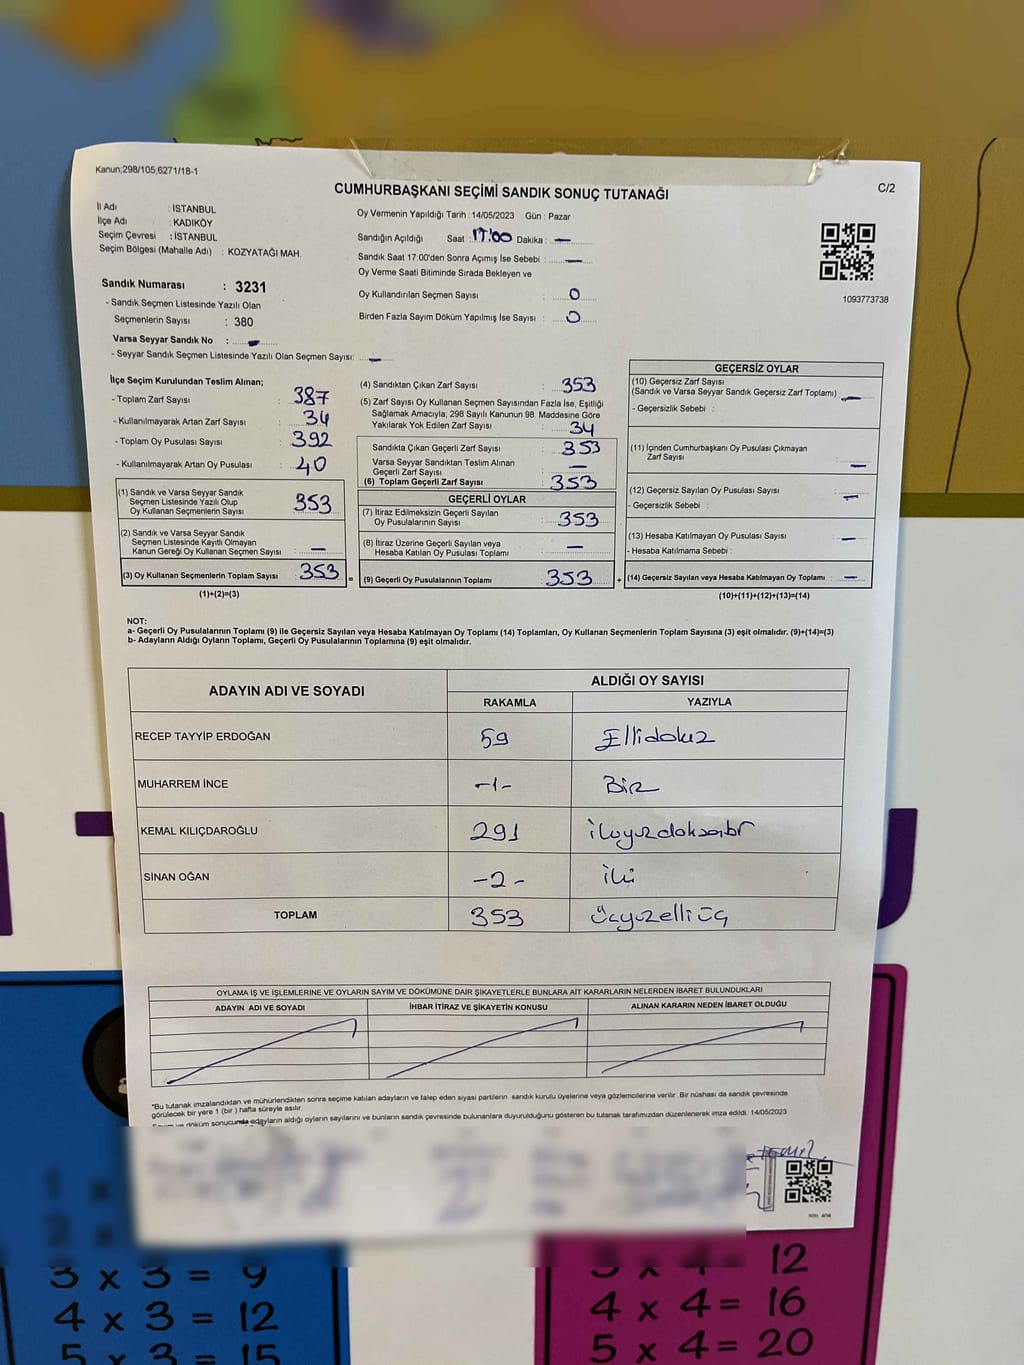 Kanun:298/105,6271/18-1
C/2
CUMHURBAŞKANI SEÇİMİ SANDIK SONUÇ TUTANAĞI
İl Adı : İSTANBUL
İlçe Adı : KADIKÖY
Seçim Çevresi : İSTANBUL
Seçim Bölgesi (Mahalle Adı) : KOZYATAĞI MAH.
Sandık Numarası : 3231
- Sandık Seçmen Listesinde Yazılı Olan
Seçmenlerin Sayısı : 380
Varsa Seyyar Sandık No : -
- Seyyar Sandık Seçmen Listesinde Yazılı Olan Seçmen Sayısı: -
Oy Vermenin Yapıldığı Tarih : 14/05/2023 Gün : Pazar
Sandığın Açıldığı Saat : 17:00 Dakika : -
Sandık Saat 17:00'den Sonra Açımış İse Sebebi : -
Oy Verme Saati Bitiminde Sırada Bekleyen ve
Oy Kullandırılan Seçmen Sayısı : 0
Birden Fazla Sayım Döküm Yapılmış İse Sayısı : 0
1093773738
İlçe Seçim Kurulundan Teslim Alınan;
- Toplam Zarf Sayısı : 387
- Kullanılmayarak Artan Zarf Sayısı : 34
- Toplam Oy Pusulası Sayısı : 392
- Kullanılmayarak Artan Oy Pusulası : 40
(1) Sandık ve Varsa Seyyar Sandık
Seçmen Listesinde Yazılı Olup
Oy Kullanan Seçmenlerin Sayısı : 353
(2) Sandık ve Varsa Seyyar Sandık
Seçmen Listesinde Kayıtlı Olmayan
Kanun Gereği Oy Kullanan Seçmen Sayısı : -
(3) Oy Kullanan Seçmenlerin Toplam Sayısı : 353
(1)+(2)=(3)
(4) Sandıktan Çıkan Zarf Sayısı : 353
(5) Zarf Sayısı Oy Kullanan Seçmen Sayısından Fazla İse, Eşitliği
Sağlamak Amacıyla; 298 Sayılı Kanunun 98. Maddesine Göre
Yakılarak Yok Edilen Zarf Sayısı : 34
Sandıkta Çıkan Geçerli Zarf Sayısı : 353
Varsa Seyyar Sandıktan Teslim Alınan
Geçerli Zarf Sayısı : -
(6) Toplam Geçerli Zarf Sayısı : 353
GEÇERLİ OYLAR
(7) İtiraz Edilmeksizin Geçerli Sayılan
Oy Pusulalarının Sayısı : 353
(8) İtiraz Üzerine Geçerli Sayılan veya
Hesaba Katılan Oy Pusulası Toplamı : -
= (9) Geçerli Oy Pusulalarının Toplamı : 353
GEÇERSİZ OYLAR
(10) Geçersiz Zarf Sayısı
(Sandık ve Varsa Seyyar Sandık Geçersiz Zarf Toplamı) : -
- Geçersizlik Sebebi :
(11) İçinden Cumhurbaşkanı Oy Pusulası Çıkmayan
Zarf Sayısı : -
(12) Geçersiz Sayılan Oy Pusulası Sayısı : -
- Geçersizlik Sebebi :
(13) Hesaba Katılmayan Oy Pusulası Sayısı : -
- Hesaba Katılmama Sebebi :
+ (14) Geçersiz Sayılan veya Hesaba Katılmayan Oy Toplamı : -
(10)+(11)+(12)+(13)=(14)
NOT:
a- Geçerli Oy Pusulalarının Toplamı (9) ile Geçersiz Sayılan veya Hesaba Katılmayan Oy Toplamı (14) Toplamları, Oy Kullanan Seçmenlerin Toplam Sayısına (3) eşit olmalıdır. (9)+(14)=(3)
b- Adayların Aldığı Oyların Toplamı, Geçerli Oy Pusulalarının Toplamına (9) eşit olmalıdır.
ADAYIN ADI VE SOYADI
ALDIĞI OY SAYISI
RAKAMLA YAZIYLA
RECEP TAYYİP ERDOĞAN 59 Ellidokuz
MUHARREM İNCE -1- Bir
KEMAL KILIÇDAROĞLU 291 ikiyüzdoksanbir
SİNAN OĞAN -2- iki
TOPLAM 353 üçyüzelliüç
OYLAMA İŞ VE İŞLEMLERİNE VE OYLARIN SAYIM VE DÖKÜMÜNE DAİR ŞİKAYETLERLE BUNLARA AİT KARARLARIN NELERDEN İBARET BULUNDUKLARI
ADAYIN ADI VE SOYADI İHBAR İTİRAZ VE ŞİKAYETİN KONUSU ALINAN KARARIN NEDEN İBARET OLDUĞU
*Bu tutanak imzalandıktan ve mühürlendikten sonra seçime katılan adayların ve talep eden siyasi partilerin sandık kurulu üyelerine veya gözlemcilerine verilir. Bir nüshası da sandık çevresinde
görülecek bir yere 1 (bir) hafta süreyle asılır.
döküm sonucunda adayların aldığı oyların sayılarını ve bunların sandık çevresinde bulunanlara duyurulduğunu gösteren bu tutanak tarafımızdan düzenlenerek imza edildi. 14/05/2023
3 x 3 = 9
4 x 3 = 12
5 x 3 = 15
12
4 x 4 = 16
5 x 4 = 20